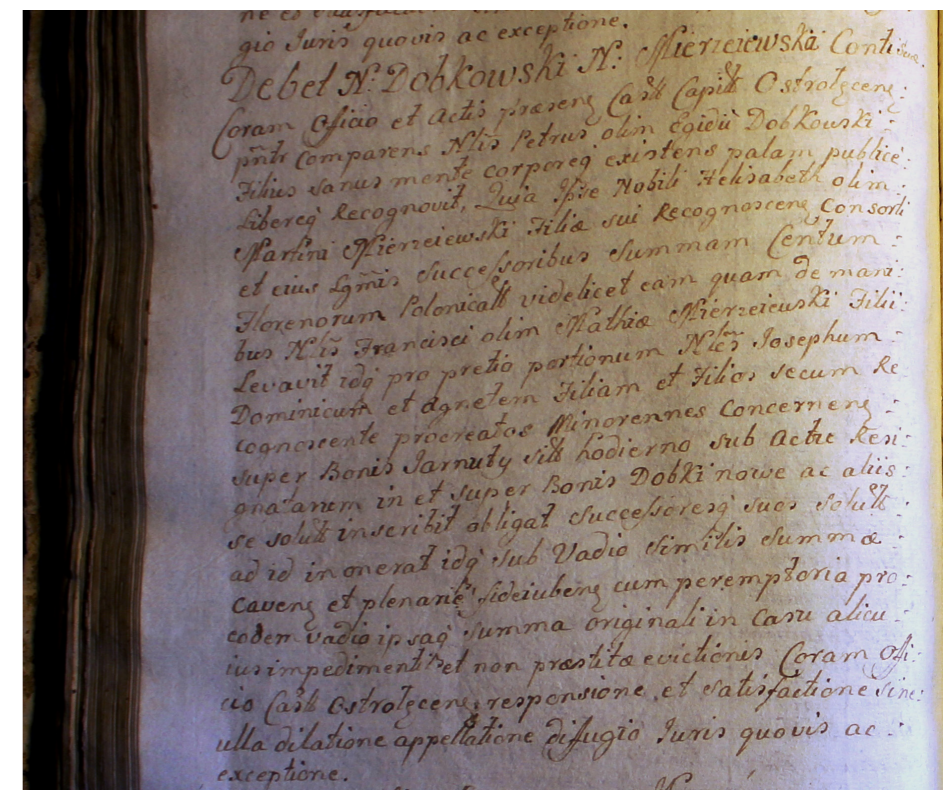 gio Juris quovis ac exceptione.
Debet N. Dobkowski N: Mierzeiewska
Coram Officio et Actis præsenꝫ Castꝛ Capitꝛ Ostrolęcenꝫ:
pñtr Comparens Nlis Petrus olim Egidii Dobkowski :
Filius sanus mente corporeqꝫ existens palam publice:
Libereqꝫ Recognovit, Quia Ipse Nobili Helisabeth olim :
Martini Mierzeiewski Filiæ sui Recognoscenꝫ Consorti
et eius Lgmis Successoribus Summam Centum :
Florenorum Polonicalt videlicet eam quam de mani:
bus Nlis Francisci olim Mathiæ Mierzeiewski Filii:
Levavit idqꝫ pro pretio portionum Nles Josephum :
Dominicum et Agnetem Filiam et Filios secum Re:
cognoscente procreatos Minorennes Concernenꝫ :
super Bonis Jarnuty sitt hodierno sub Actu Resi:
gnatarum in et super Bonis Dobki nowe ac aliis:
se solutt inscribit obligat Successoresqꝫ suos solutt :
ad id in onerat idqꝫ sub Vadio similis Summæ :
cavenꝫ et plenarie fideiubenꝫ cum peremptoria pro:
eodem vadio ipsaqꝫ Summa originali in Casu alicu:
ius impedimenti et non præstitæ evictionis Coram Offi:
cio Castꝛ Ostrolęcenꝫ responsione et satisfactione sine:
ulla dilatione appellatione diffugio Juris quovis ac :
exceptione.